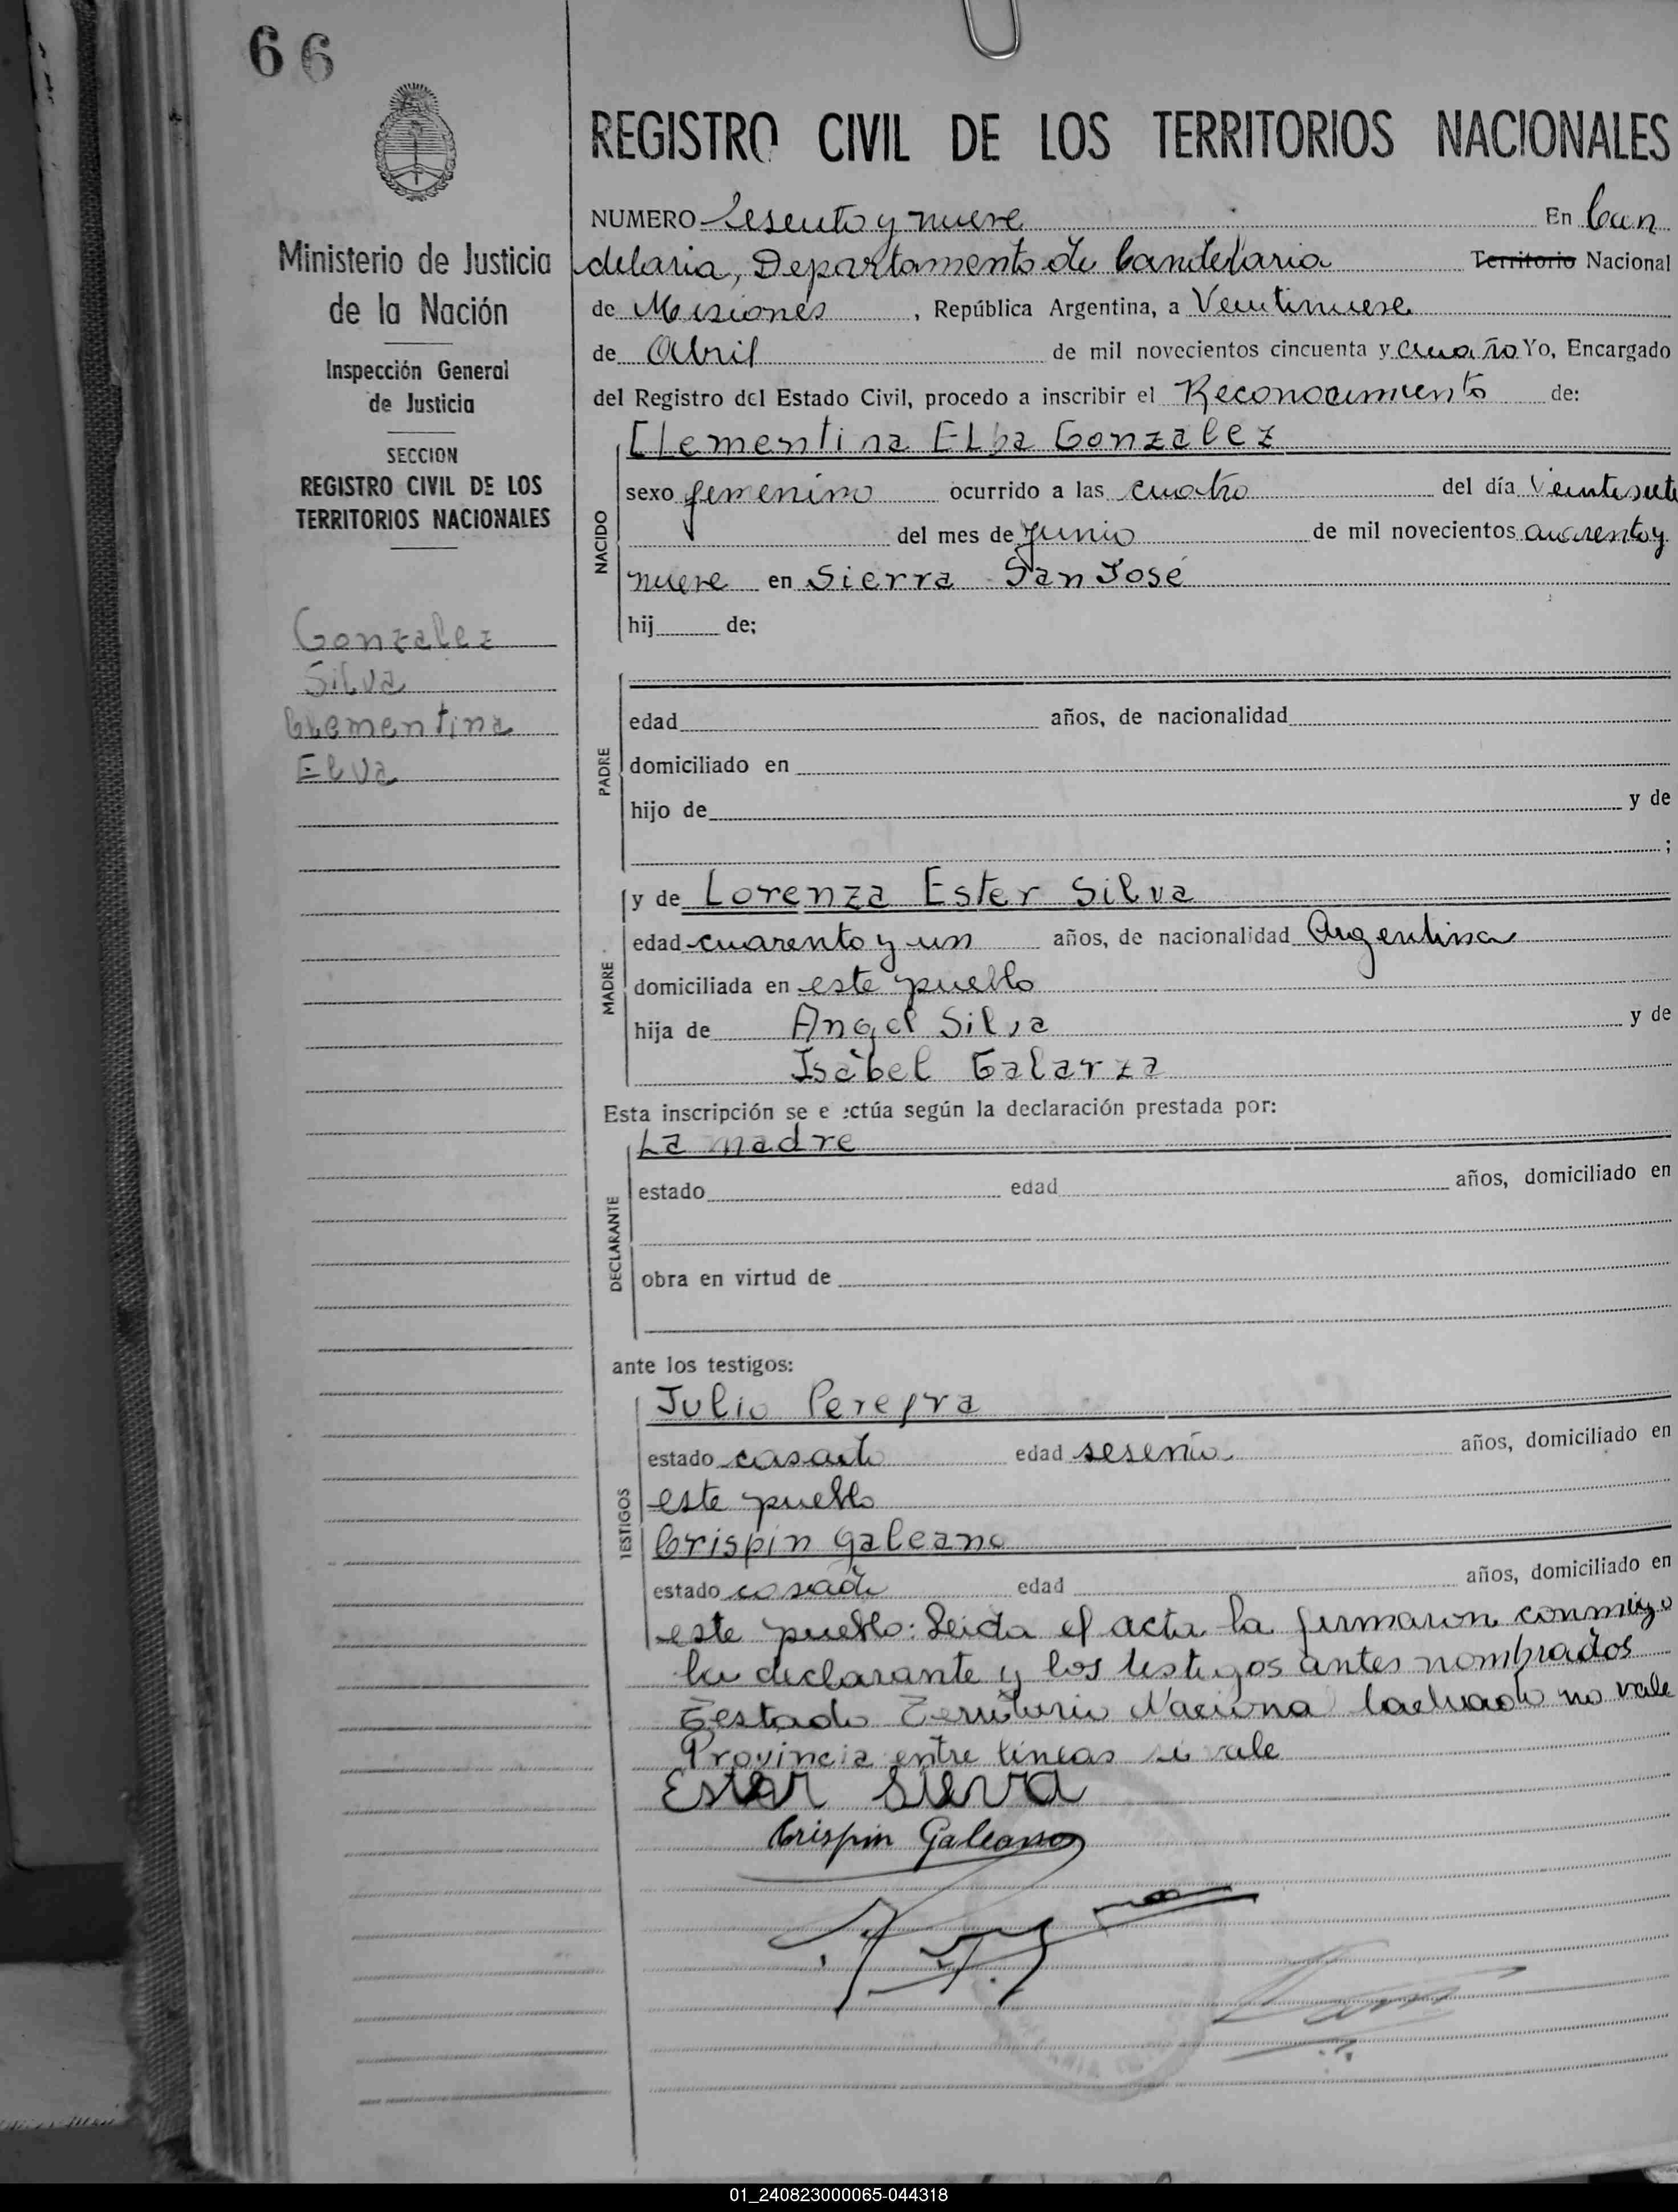 66
REGISTRO CIVIL DE LOS TERRITORIOS NACIONALES
Ministerio de Justicia
de la Nación
Inspección General
de Justicia
SECCION
REGISTRO CIVIL DE LOS
TERRITORIOS NACIONALES
Gonzalez
Silva
Clementina
Elva
NUMERO Sesenta y nueve En Can
delaria, Departamento de Candelaria Territorio Nacional
de Misiones , República Argentina, a Veintinueve
de Abril de mil novecientos cincuenta y cuatro Yo, Encargado
del Registro del Estado Civil, procedo a inscribir el Reconocimiento de:
NACIDO
Clementina Elba Gonzalez
sexo femenino ocurrido a las cuatro del día Veintisiete
del mes de Junio de mil novecientos cuarenta y
nueve en Sierra San José
hij de;
PADRE
edad años, de nacionalidad
domiciliado en
hijo de y de
;
MADRE
y de Lorenza Ester Silva
edad cuarenta y un años, de nacionalidad Argentina
domiciliada en este pueblo
hija de Angel Silva y de
Isabel Galarza
Esta inscripción se e ectúa según la declaración prestada por:
DECLARANTE
La madre
estado edad años, domiciliado en
obra en virtud de
ante los testigos:
TESTIGOS
Julio Pereyra
estado casado edad sesenta años, domiciliado en
este pueblo
Crispin Galeano
estado casado edad años, domiciliado en
este pueblo: Leida el acta la firmaron conmigo
la declarante y los testigos antes nombrados
Testado Territorio Naciona tachado no vale
Provincia entre lineas si vale
Ester Silva
Crispin Galeano
01_240823000065-044318